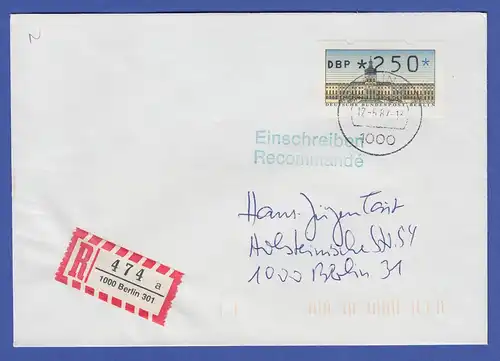 N
DBP *250*
DEUTSCHE BUNDESPOST BERLIN
17-6.87-12
1000
Einschreiben
Recommandé
Hans-Jürgen Tast
Holsteinische Str. 54
1000 Berlin 31
R
474 a
1000 Berlin 301